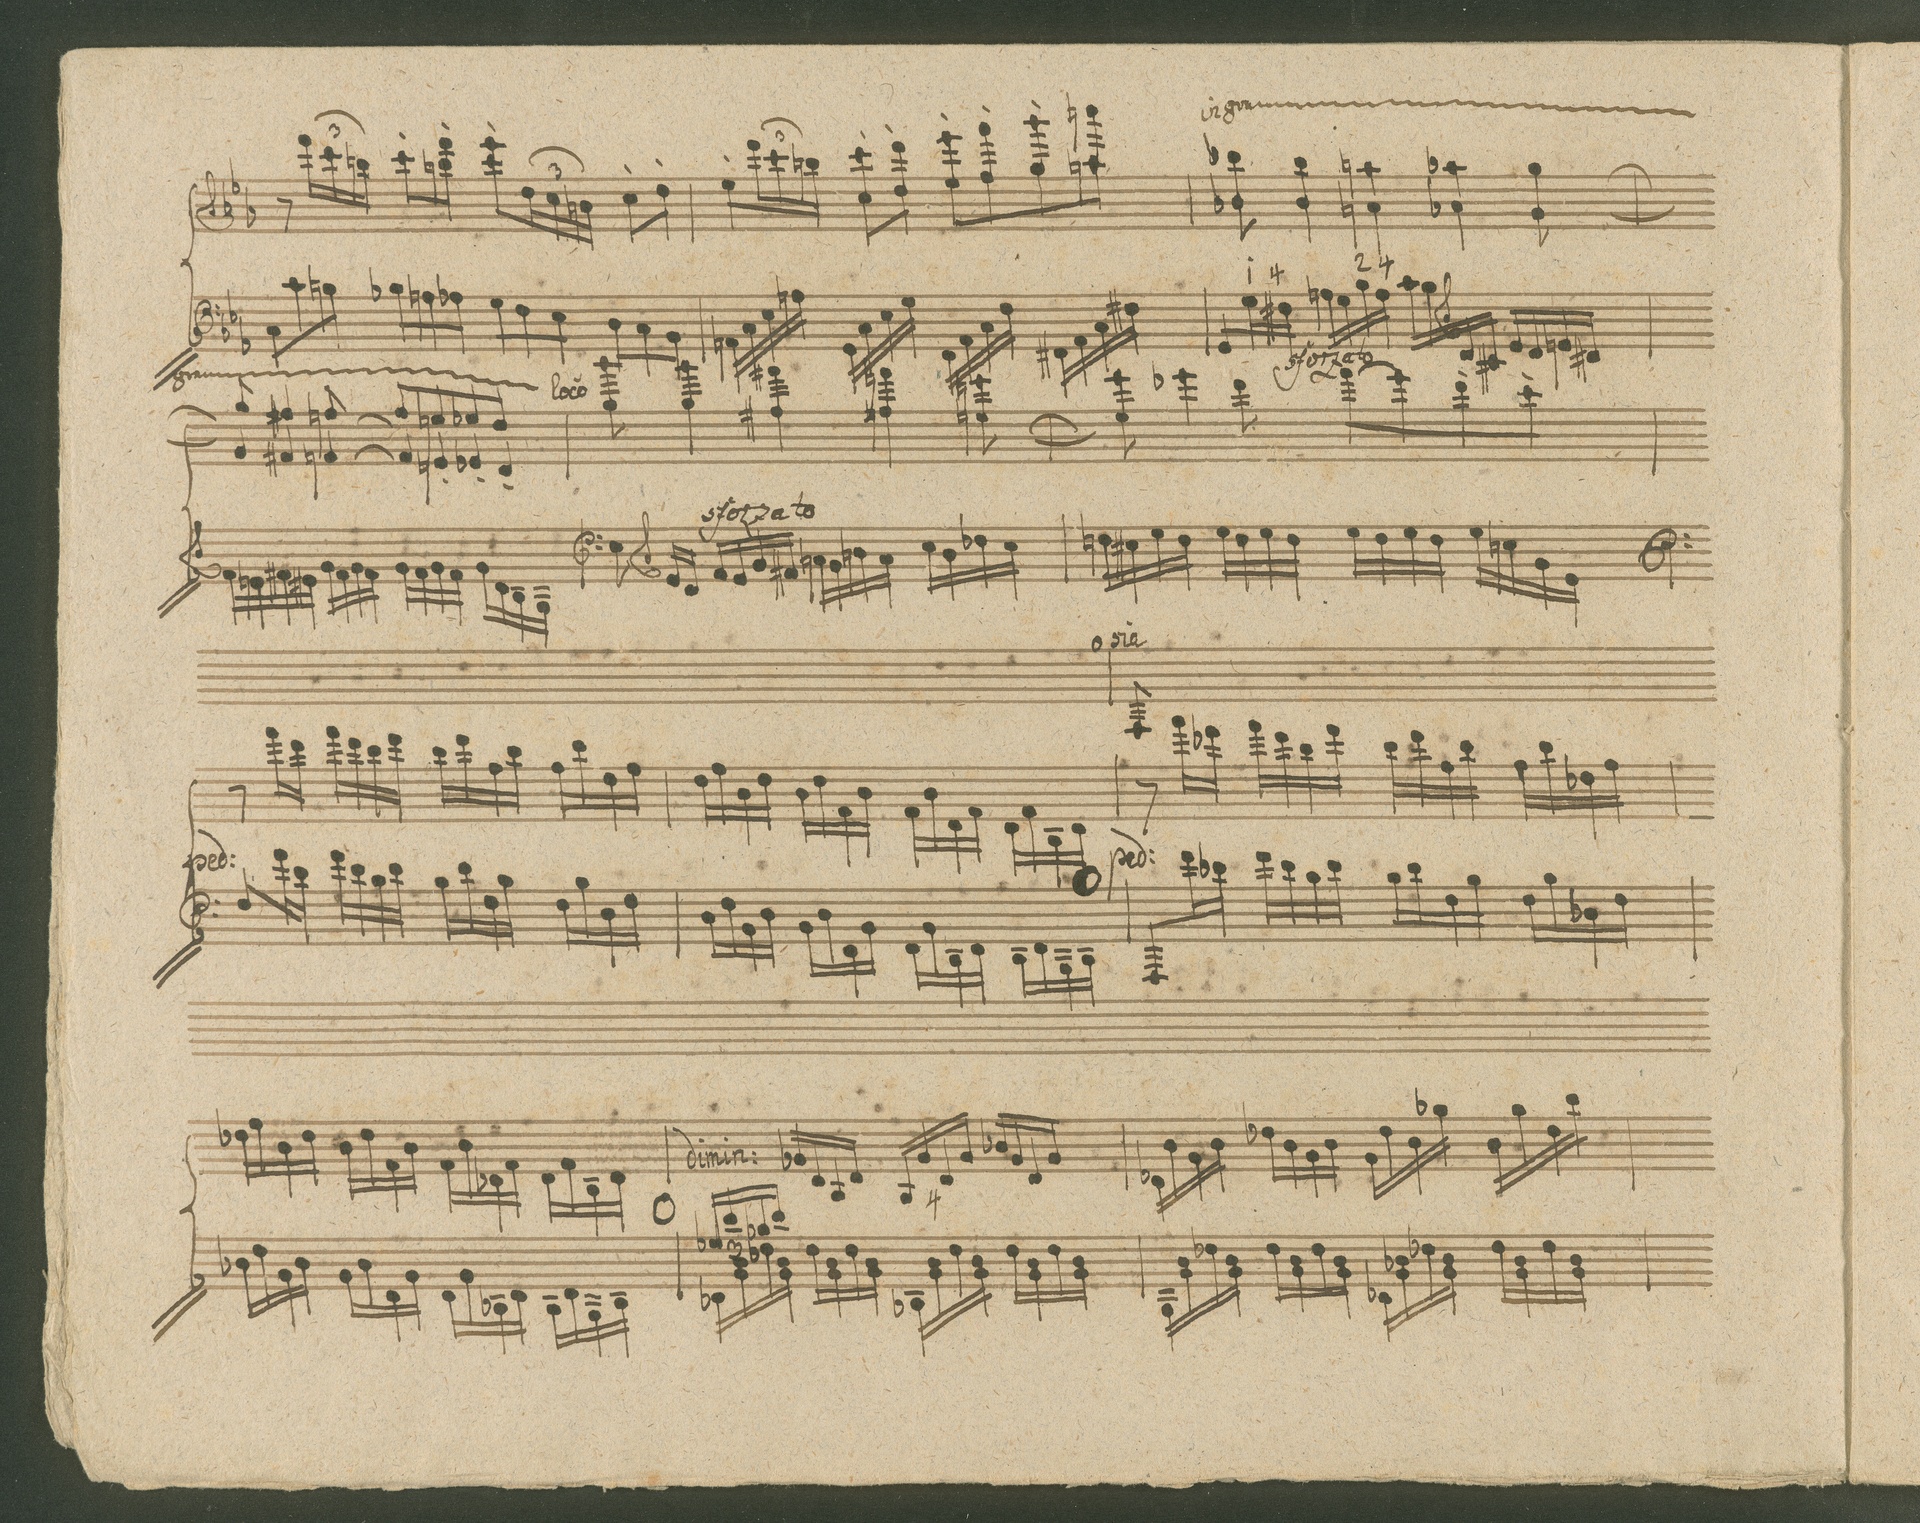 3
3
3
1 4
2 4
sforzato
loco
sforzato
o sia
ped:
ped:
dimin:
4
3